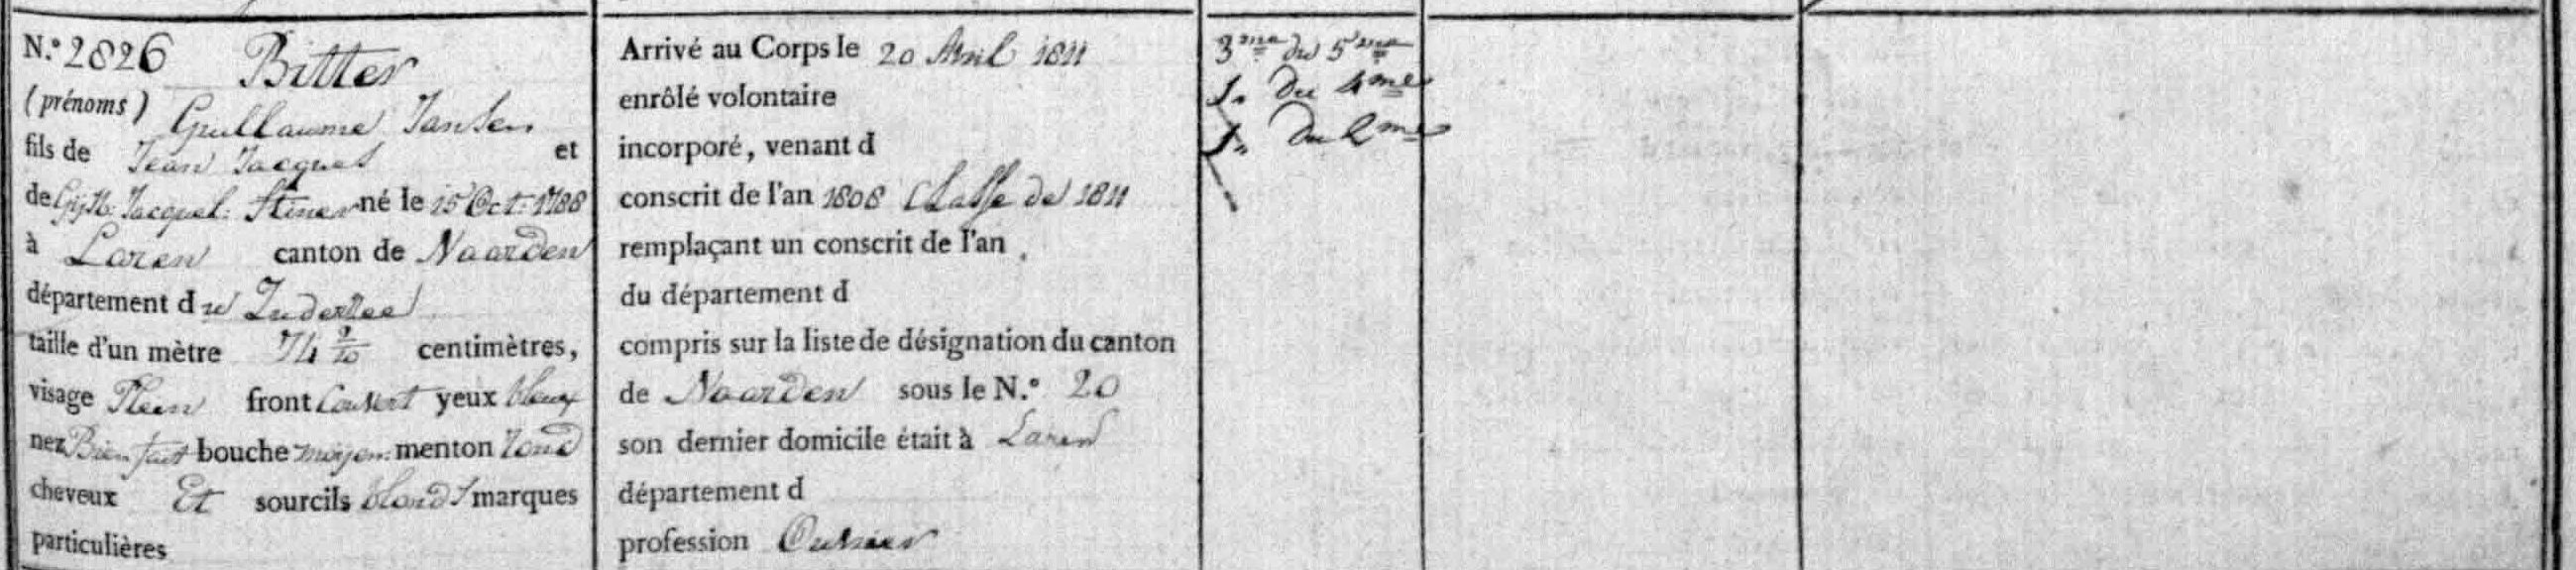 N.° 2826 Bitter
(prénoms) Guillaume Jansen
fils de Jean Jacques et
de Gijsb: Jacquel: née le 15 Oct: 1788
à Laren canton de Naarden
département du Zuderzee
taille d'un mètre 74 2/10 centimètres,
visage Plein front Couvert yeux bleux
nez Bien fait bouche moyen: menton rond
cheveux Et sourcils blonds marques
particulières
Arrivé au Corps le 20 Avril 1811
enrôlé volontaire
incorporé, venant d
conscrit de l'an 1808 Classe de 1811
remplaçant un conscrit de l'an
du département d
compris sur la liste de désignation du canton
de Naarden sous le N.° 20
son dernier domicile était à Laren
département d
profession Ouvrier
3me du 5me
1. du 4me
1. du 2me